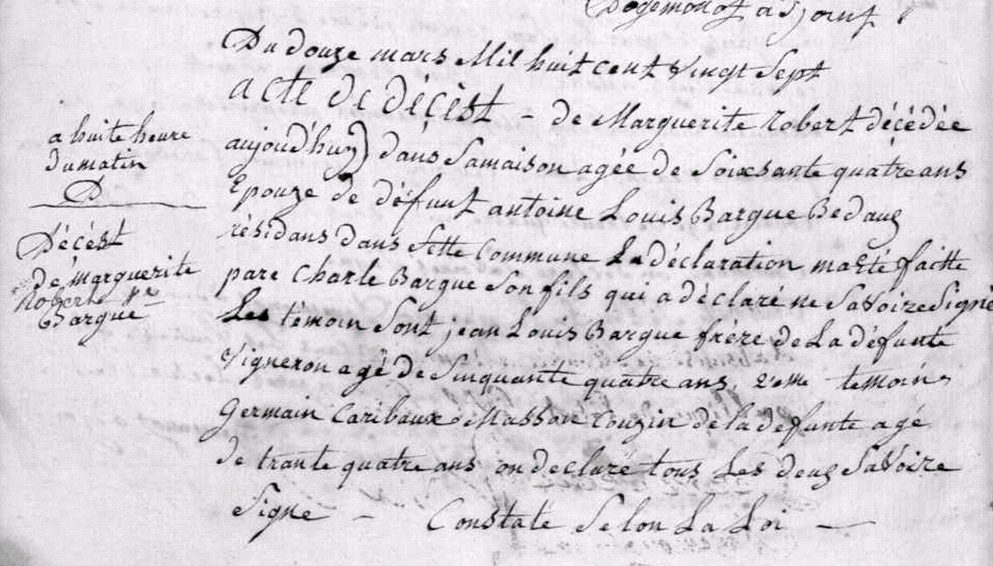 Dogemont adjoint
Du douze mars Mil huit cent Vingt Sept
acte de décèst - de Marguerite robert décédée
aujoud'huy) dans Samaison agée de Soixsante quatre ans
Epouze de défunt antoine Louis Barque Bedaug
résidans dans Sette Commune La déclaration maété faitte
pare Charle Barque Son fils qui a déclaré ne Savoire Signé
Les témoin Sont jean Louis Barque frère de La défunte
Vigneron agé de Sinquante quatre ans, 2eme temoins
Germain Caribaux Masson Couzin de la defunte agé
de trante quatre ans on declaré tous Les deux Savoire
Signe - Constate Selon La Loi -
a huite heure
du matin
D
Décèst
de marguerite
Roberte
Barque